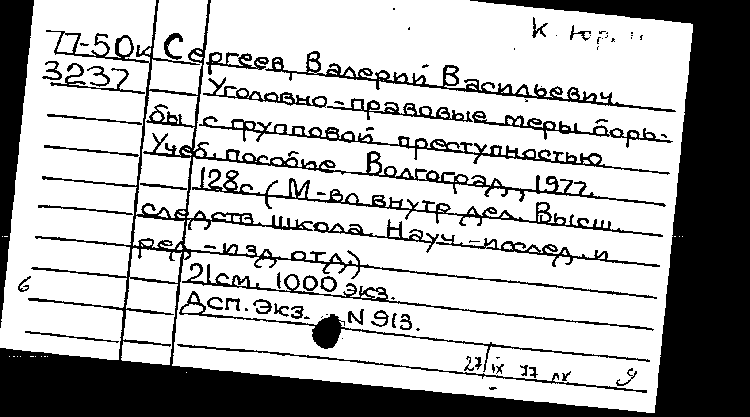 К. юр. н
77-50к Сергеев, Валерий Васильевич.
3237 Уголовно-правовые меры борь-
бы с групповой преступностью.
Учеб. пособие. Волгоград, 1977.
128с. (М-во внутр дел. Высш.
следств. школа. Науч.-исслед. и
ред.-изд. отд.)
21см. 1000 экз.
Дсп. Экз. N 913.
6
27/IX 77
9